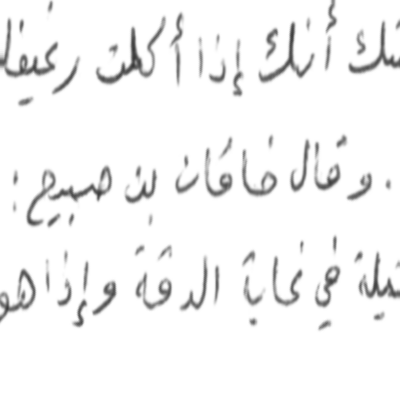 أنك إذا أكلت رغيفا
. وقال خاقان بن صبيح :
في غاية الدقة وإذا هو